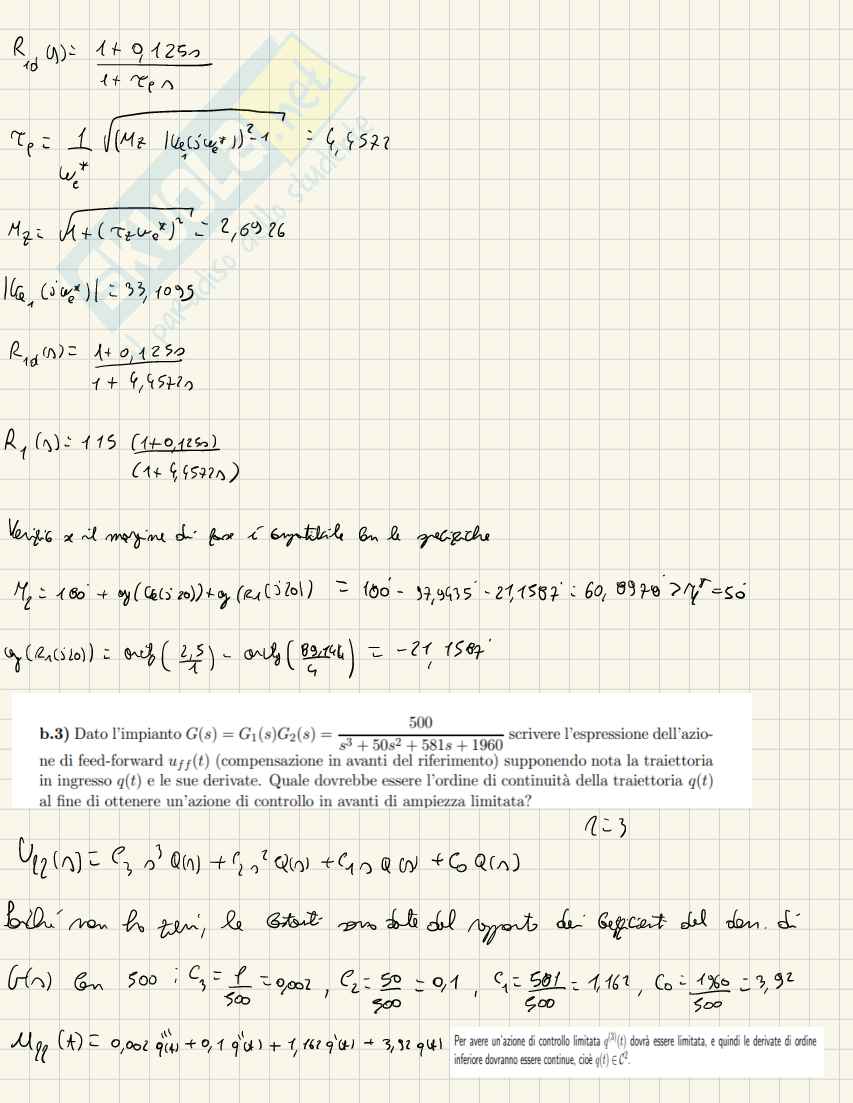 R1d(s) = (1 + 0,125s) / (1 + τp s)
τp = 1/ωc* √((Mz |Ge1(jωc*)|)² - 1) = 4,4572
Mz = √(1 + (τz ωc*)²) = 2,6926
|Ge1(jωc*)| = 33,1095
R1d(s) = (1 + 0,125s) / (1 + 4,4572s)
R1(s) = 115 (1+0,125s) / (1 + 4,4572s)
Verifico se il margine di fase è compatibile con le specifiche
Mf = 180° + arg(Ge(j20)) + arg(R1(j20)) = 180° - 97,9435° - 21,1587° = 60,8978° > Mf* = 50°
arg(R1(j20)) = arctg(2,5/1) - arctg(89,144/1) = -21,1587°
b.3) Dato l'impianto G(s) = G1(s)G2(s) = 500 / (s³ + 50s² + 581s + 1960) scrivere l'espressione dell'azio-
ne di feed-forward uff(t) (compensazione in avanti del riferimento) supponendo nota la traiettoria
in ingresso q(t) e le sue derivate. Quale dovrebbe essere l'ordine di continuità della traiettoria q(t)
al fine di ottenere un'azione di controllo in avanti di ampiezza limitata?
r = 3
Uff(s) = C3 s³ Q(s) + C2 s² Q(s) + C1 s Q(s) + C0 Q(s)
Poiché non ho zeri, le costanti sono date dal rapporto dei coefficienti del den. di
G(s) con 500 : C3 = 1/500 = 0,002 , C2 = 50/500 = 0,1 , C1 = 581/500 = 1,162 , C0 = 1960/500 = 3,92
uff(t) = 0,002 q'''(t) + 0,1 q''(t) + 1,162 q'(t) + 3,92 q(t)
Per avere un'azione di controllo limitata q⁽³⁾(t) dovrà essere limitata, e quindi le derivate di ordine
inferiore dovranno essere continue, cioè q(t) ∈ C².
SKUOLA.net
il paradiso dello studente